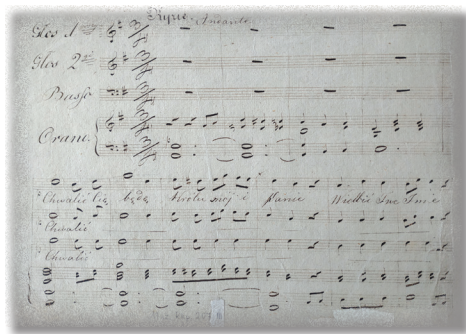 Kyrie. Andante
Głos 1
Głos 2
Basso
Organo
Chwalić Cię będę Królu mój i Panie Wielbić Imię
Chwalić
Chwalić